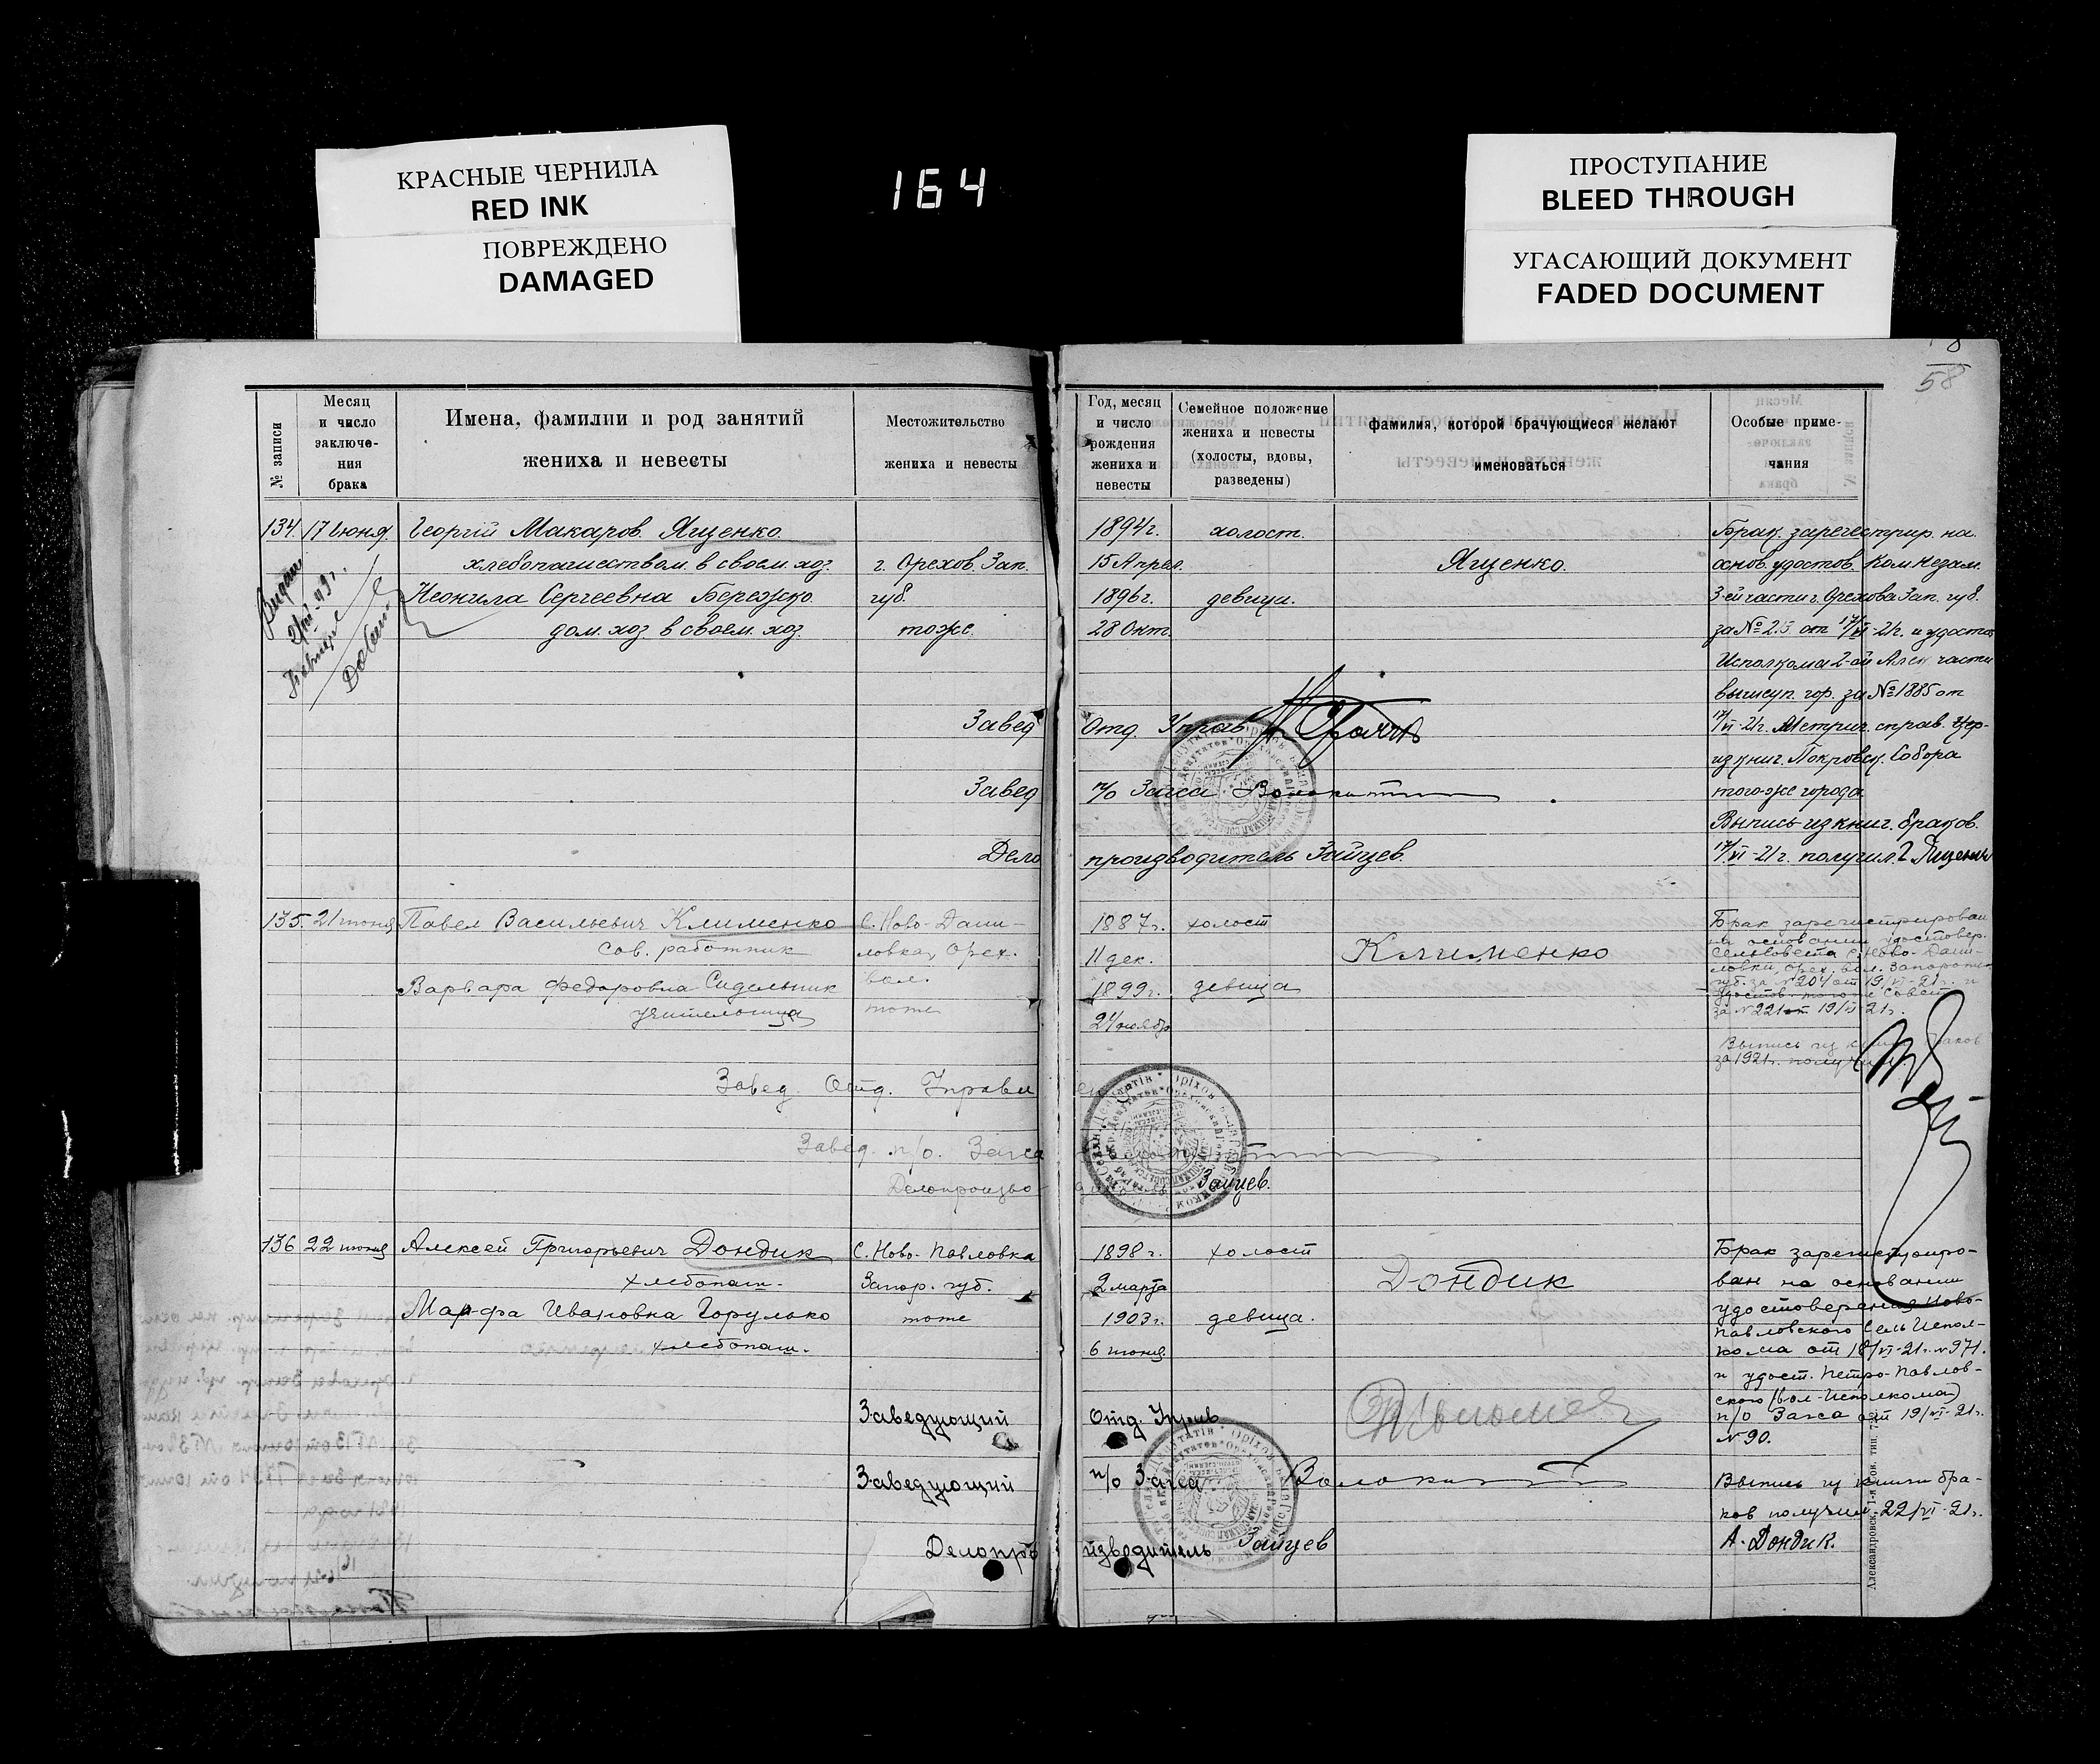 КРАСНЫЕ ЧЕРНИЛА
RED INK
ПОВРЕЖДЕНО
DAMAGED
164
ПРОСТУПАНИЕ
BLEED THROUGH
УГАСАЮЩИЙ ДОКУМЕНТ
FADED DOCUMENT
58
№ записи
Месяц
и число
заключе-
ния
брака
Имена, фамилии и род занятий
жениха и невесты
Местожительство
жениха и невесты
Год, месяц
и число
рождения
жениха и
невесты
Семейное положение
жениха и невесты
(холосты, вдовы,
разведены)
фамилия, которой брачующиеся желают
именоваться
Особые приме-
чания
134. 17 июня. Георгий Макаров. Ященко.
хлебопашеством. в своем. хоз.
Неонила Сергеевна Бережко.
дом. хоз в своем. хоз.
г. Орехов. Зап.
губ.
тоже.
1894 г.
15 Апрел.
1896 г.
28 Окт.
холост.
девица.
Ященко.
Брак. зарегестрир. на.
основ. удостов. Ком. Незам.
3-ей части г. Орехова Зап. губ.
за № 2.5 от 17/VI-21г. и удостов
Исполкома 2-ой Алек части
вышеуп. гор. за № 1885 от
17/VI-21г. Метрич. справ. Цер-
из книг. Покровск. Собора
того-же города
Выпись из книг. браков.
17/VI-21г. получил. Г. Ященко
Завед Отд. Управ
Завед п/о Загса
Делопроизводитель Зайцев.
135. 21 июня Павел Васильевич Клименко
Сов. работник
Варвара Федоровна Сидельник
учительница
С. Ново-Дани-
ловка, Орех.
вол.
тоже
1887 г.
11 дек.
1899 г.
24 ноябр
холост
девица
Клименко
Брак зарегистрирован
на основании удостовер.
Сельсовета с. Ново-Дани-
ловки, Орех. вол. Запорожск
губ. за № 204 от 19/VI-21г. и
удостов. того же Совета
за № 221 от 19/VI 21г.
Выпись из книги браков
за 1921г. получил.
Завед. Отд. Управлен
Завед. п/о. Загса
Делопроизво Зайцев.
136 22 июня Алексей Григорьевич Дондик
хлебопаш.
Марфа Ивановна Горулько
хлебопаш.
С. Ново-Павловка
Запор. губ.
тоже
1898 г.
2 марта
1903 г.
6 июня
холост
девица.
Дондик
Брак зарегистриро-
ван на основании
удостоверения Ново-
павловского Сель Испол-
кома от 18/VI-21г. № 971.
и удост. Петро-Павлов-
ского (Вол-Исполкома)
п/о Загса от 19/VI-21г.
№ 90.
Выпись из книги бра-
ков получил 22/VI-21г.
А. Дондик.
Заведующий Отд. Управ.
Заведующий п/о Загса
Делопроизводитель Зайцев